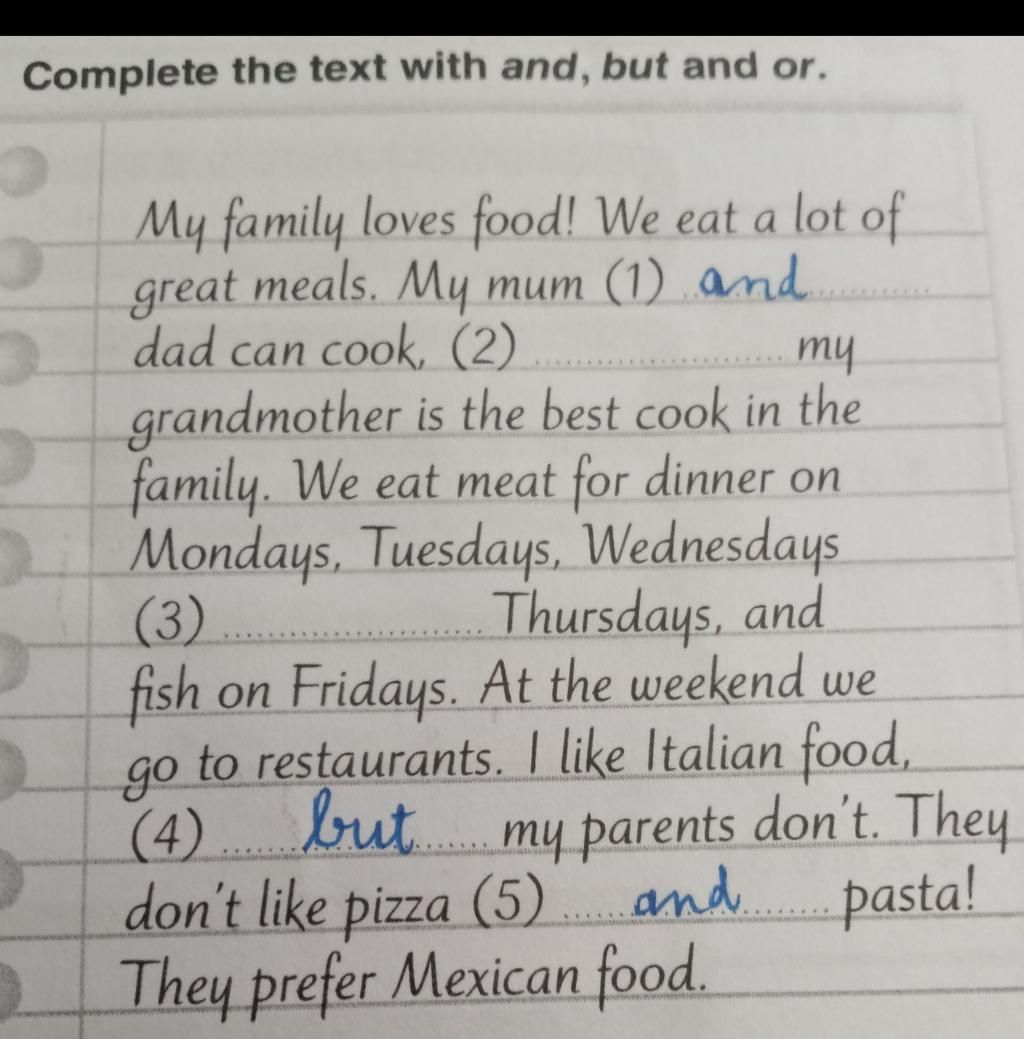 Complete the text with and, but and or.
My family loves food! We eat a lot of
great meals. My mum (1) and
dad can cook, (2) .......................... my
grandmother is the best cook in the
family. We eat meat for dinner on
Mondays, Tuesdays, Wednesdays
(3) .......................... Thursdays, and
fish on Fridays. At the weekend we
go to restaurants. I like Italian food,
(4) but my parents don't. They
don't like pizza (5) and pasta!
They prefer Mexican food.